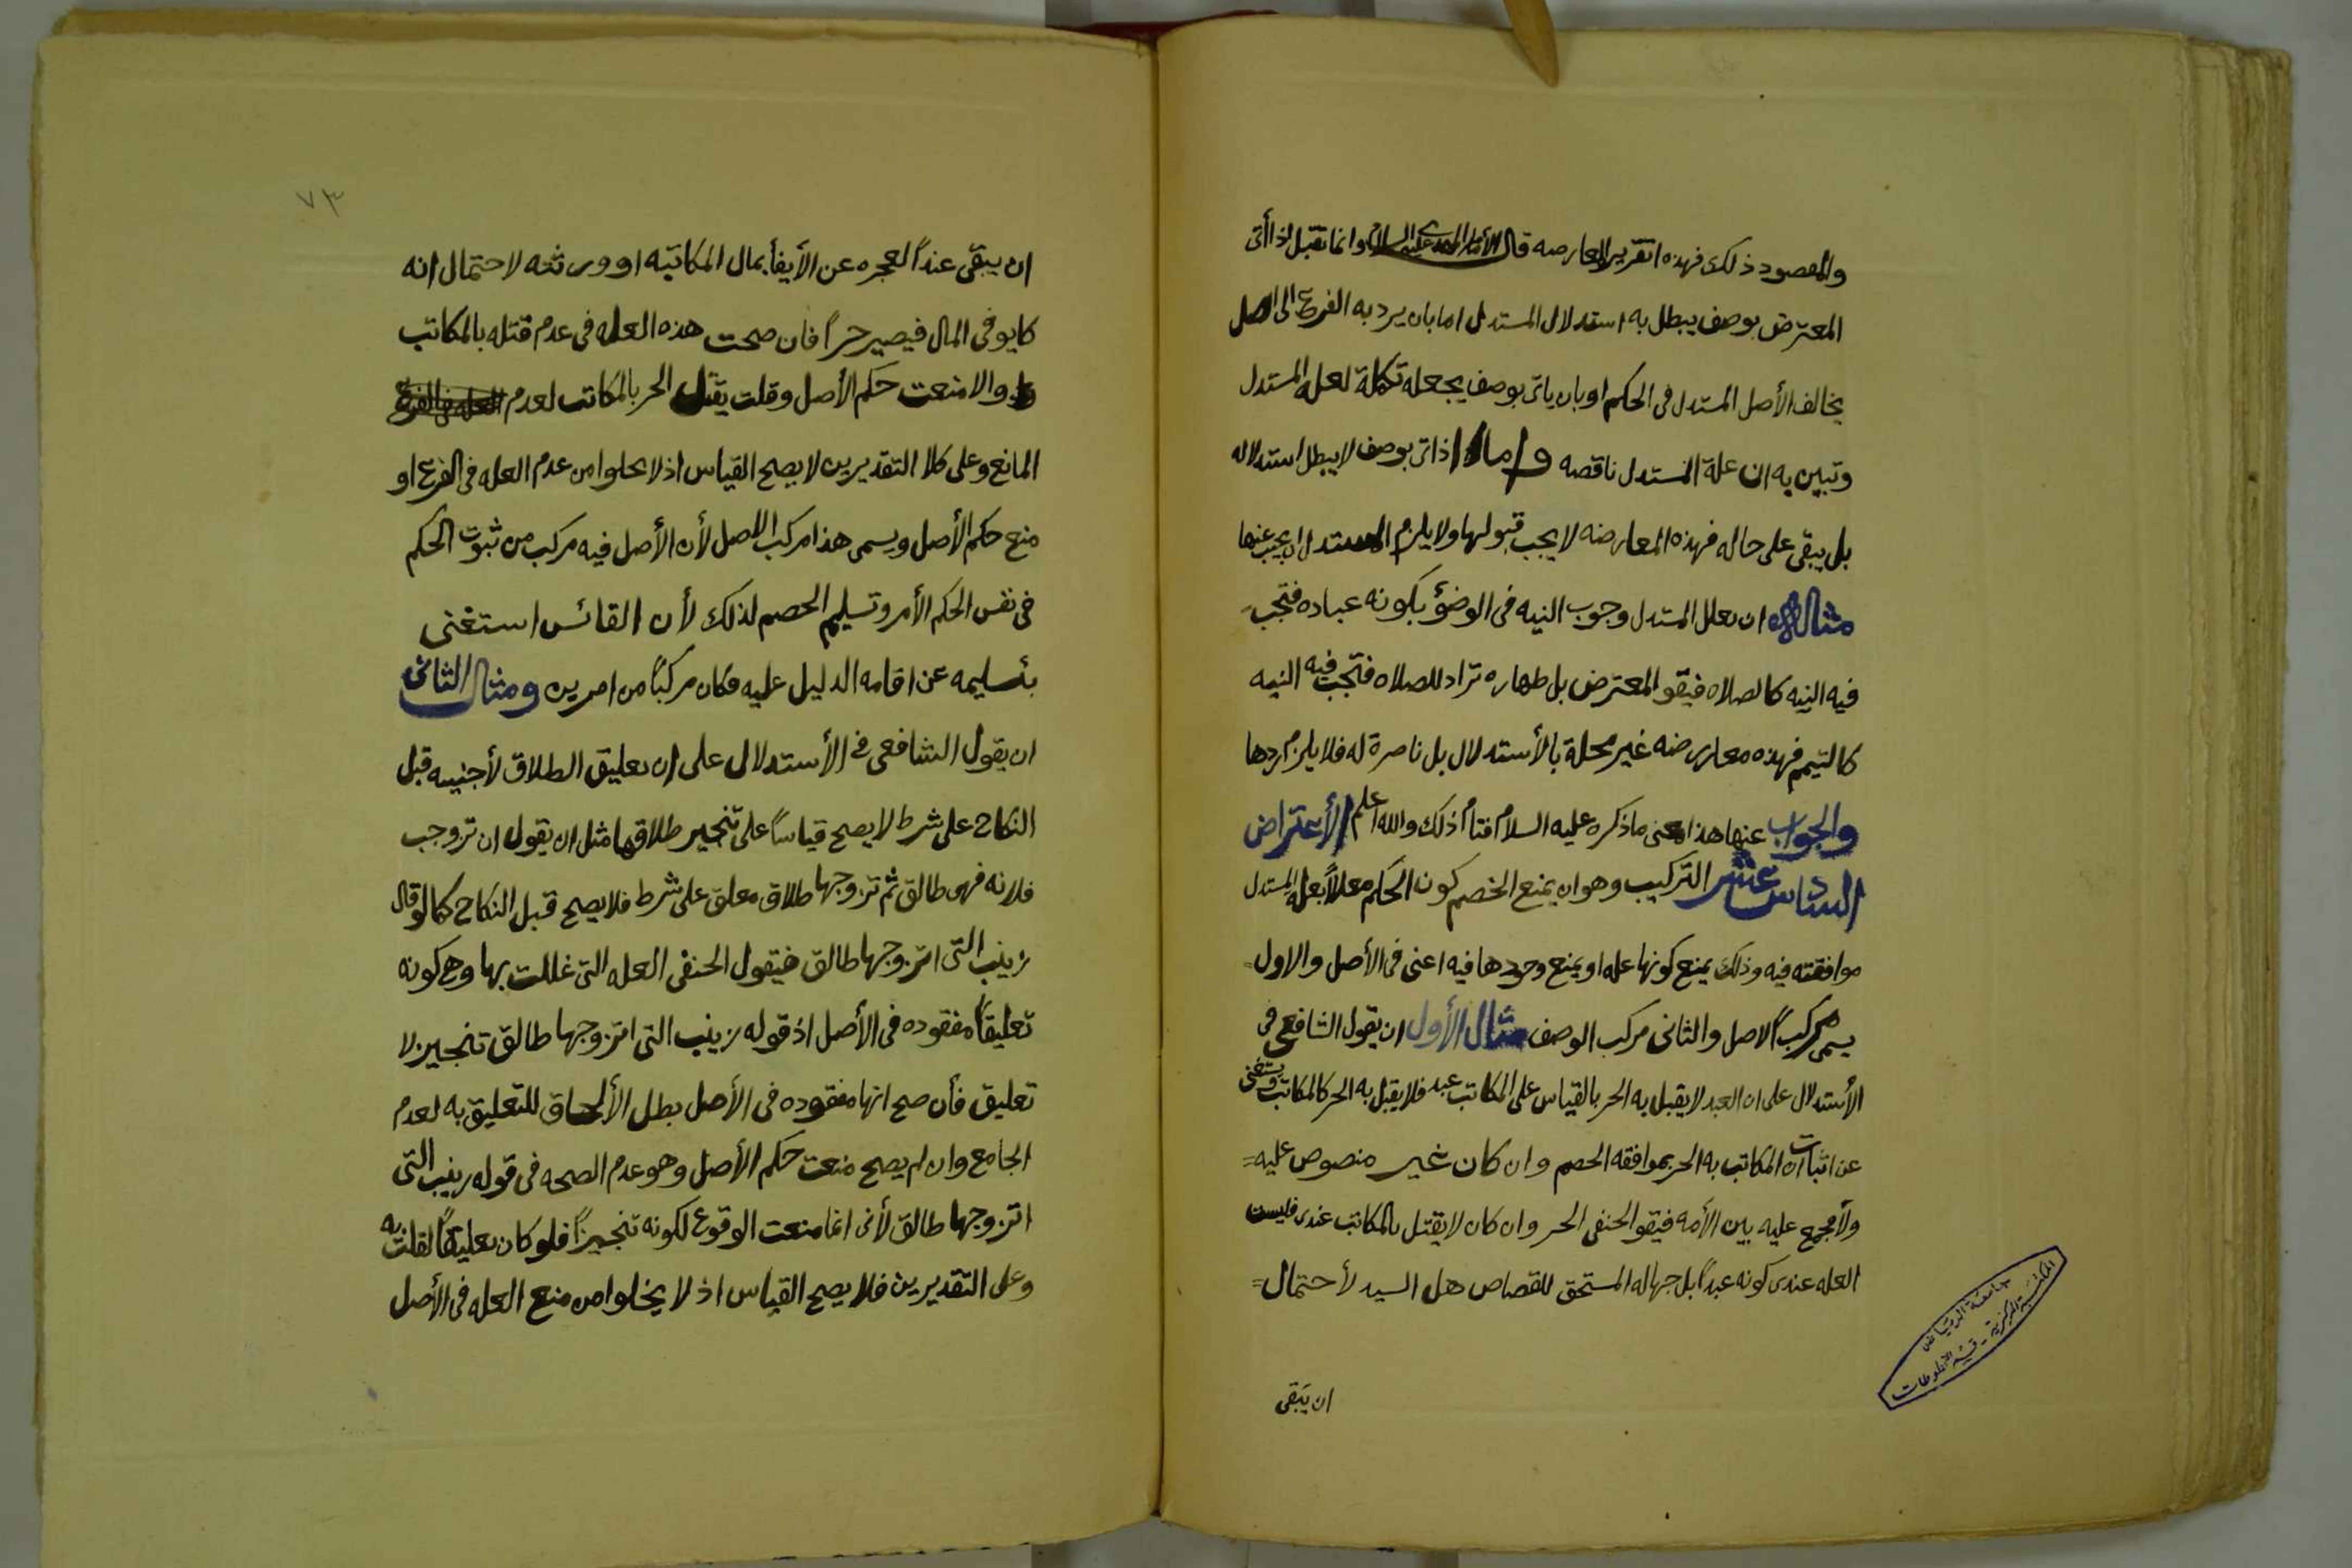 والمقصود ذلك فهذه اتقرير المعارضه قال الأمام المهدي عليه السلام وانما تقبل اذا أتى
المعترض بوصف يبطل به استدلال المستدل اما بان يرد به الفرع الى اصل
يخالف الأصل المستدل فى الحكم او بان ياتى بوصف يجعله تكملة لعله المستدل
وتبين به ان علة المستدل ناقصه واما اذا اتى بوصف لا يبطل استدلاله
بل يبقى على حاله فهذه المعارضه لا يجب قبولها ولا يلزم المستدل ان يجيب عنها
مثاله ان يعلل المستدل وجوب النيه فى الوضؤ بكونه عباده فتجب
فيه النيه كالصلاه فيقو المعترض بل طهاره تراد للصلاه فتجب فيه النيه
كالتيمم فهذه معارضه غير مخلة بالأستدلال بل ناصرة له فلا يلزم ردها
والجواب عنها هذا معنى ما ذكره عليه السلام فتأم اذلك والله اعلم الأعتراض
السادس عشر التركيب وهو ان يمنع الخصم كون الحكم معللاً بعلة المستدل
موافقته فيه وذلك يمنع كونها عله او يمنع وجودها فيه اعنى فى الأصل والاول=
يسمى مركب الاصل والثانى مركب الوصف مثال الأول ان يقول الشافعي فى
الأستدلال على ان العبد لا يقبل به الحر بالقياس على المكاتب عبد فلا يقبل به الحر كالمكاتب ويستغنى
عن اثبات ان المكاتب به الحر بموافقه الخصم وان كان غير منصوص عليه=
ولا مجمع عليه بين الأمه فيقو الحنفى الحر وان كان لا يقتل بالمكاتب عندى فليست
العله عندى كونه عبداً بل جهاله المستحق للقصاص هل السيد لأحتمال=
ان يبقى
جامعة الرياض
المكتبة المركزية - قسم المخطوطات
٧٣
ان يبقى عنداً لعجزه عن الأيفأ بمال المكاتبه او ورثته لاحتمال انه
كايوفى المال فيصير حراً فان صحت هذه العله فى عدم قتله بالمكاتب
والا منعت حكم الأصل وقلت يقتل الحر بالمكاتب لعدم العله فى الفرع
المانع وعلى كلا التقديرين لا يصح القياس اذ لا يخلوا من عدم العله فى الفرع او
منع حكم الأصل ويسمى هذا مركب الاصل لأن الأصل فيه مركب من ثبوت الحكم
فى نفس الحكم الأمر وتسليم الخصم لذلك لأن القائس استغنى
بتسليمه عن اقامه الدليل عليه فكان مركباً من امرين ومثال الثانى
ان يقول الشافعى فى الأستدلال على ان تعليق الطلاق لأجنبيه قبل
النكاح على شرط لا يصح قياساً على تنجيز طلاقها مثل ان يقول ان تزوجت
فلانه فهى طالق ثم تزوجها طلاق معلق على شرط فلا يصح قبل النكاح كما لو قال
زينب التى اتزوجها طالق فيقول الحنفى العله التى عللت بها وهى كونه
تعليقاً مفقوده فى الأصل اذ قوله زينب التى اتزوجها طالق تنجيز لا
تعليق فأن صح انها مفقوده فى الأصل بطل الألحاق للتعليق به لعدم
الجامع وان لم يصح منعت حكم الأصل وهو عدم الصحه فى قوله زينب التى
اتزوجها طالق لأنى انما منعت الوقوع لكونه تنجيزاً فلو كان تعليقاً لقلت به
وعلى التقديرين فلا يصح القياس اذ لا يخلوا من منع العله فى الأصل